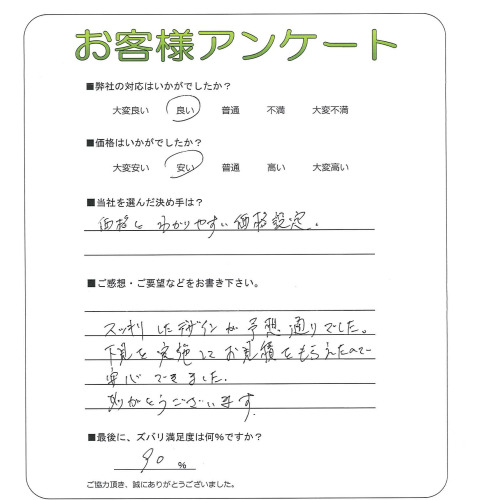 お客様アンケート
■弊社の対応はいかがでしたか？
大変良い 良い 普通 不満 大変不満
■価格はいかがでしたか？
大変安い 安い 普通 高い 大変高い
■当社を選んだ決め手は？
価格と わかりやすい価格設定。
■ご感想・ご要望などをお書き下さい。
スッキリしたデザインが予想通りでした。
下見を実施してお見積をもらえたので
安心できました。
ありがとうございます。
■最後に、ズバリ満足度は何%ですか？
90 %
ご協力頂き、誠にありがとうございました。